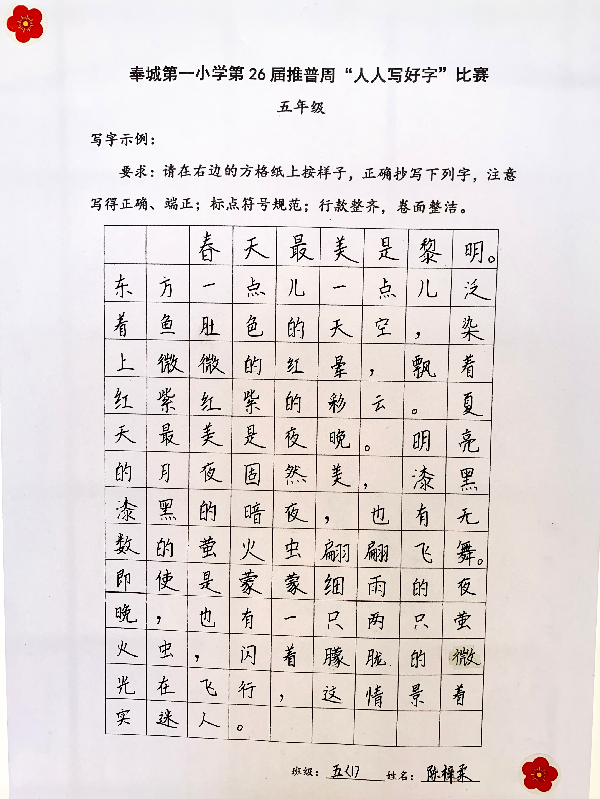 奉城第一小学第26届推普周“人人写好字”比赛
五年级
写字示例：
要求：请在右边的方格纸上按样子，正确抄写下列字，注意
写得正确、端正；标点符号规范；行款整齐，卷面整洁。
春天最美是黎明。
东方一点儿一点儿泛
着鱼肚色的天空，染
上微微的红晕，飘着
红紫红紫的彩云。夏
天最美是夜晚。明亮
的月夜固然美，漆黑
漆黑的暗夜，也有无
数的萤火虫翩翩飞舞。
即使是蒙蒙细雨的夜
晚，也有一只两只萤
火虫，闪着朦胧的微
光在飞行，这情景着
实迷人。
班级：五（1） 姓名：陈梓柔